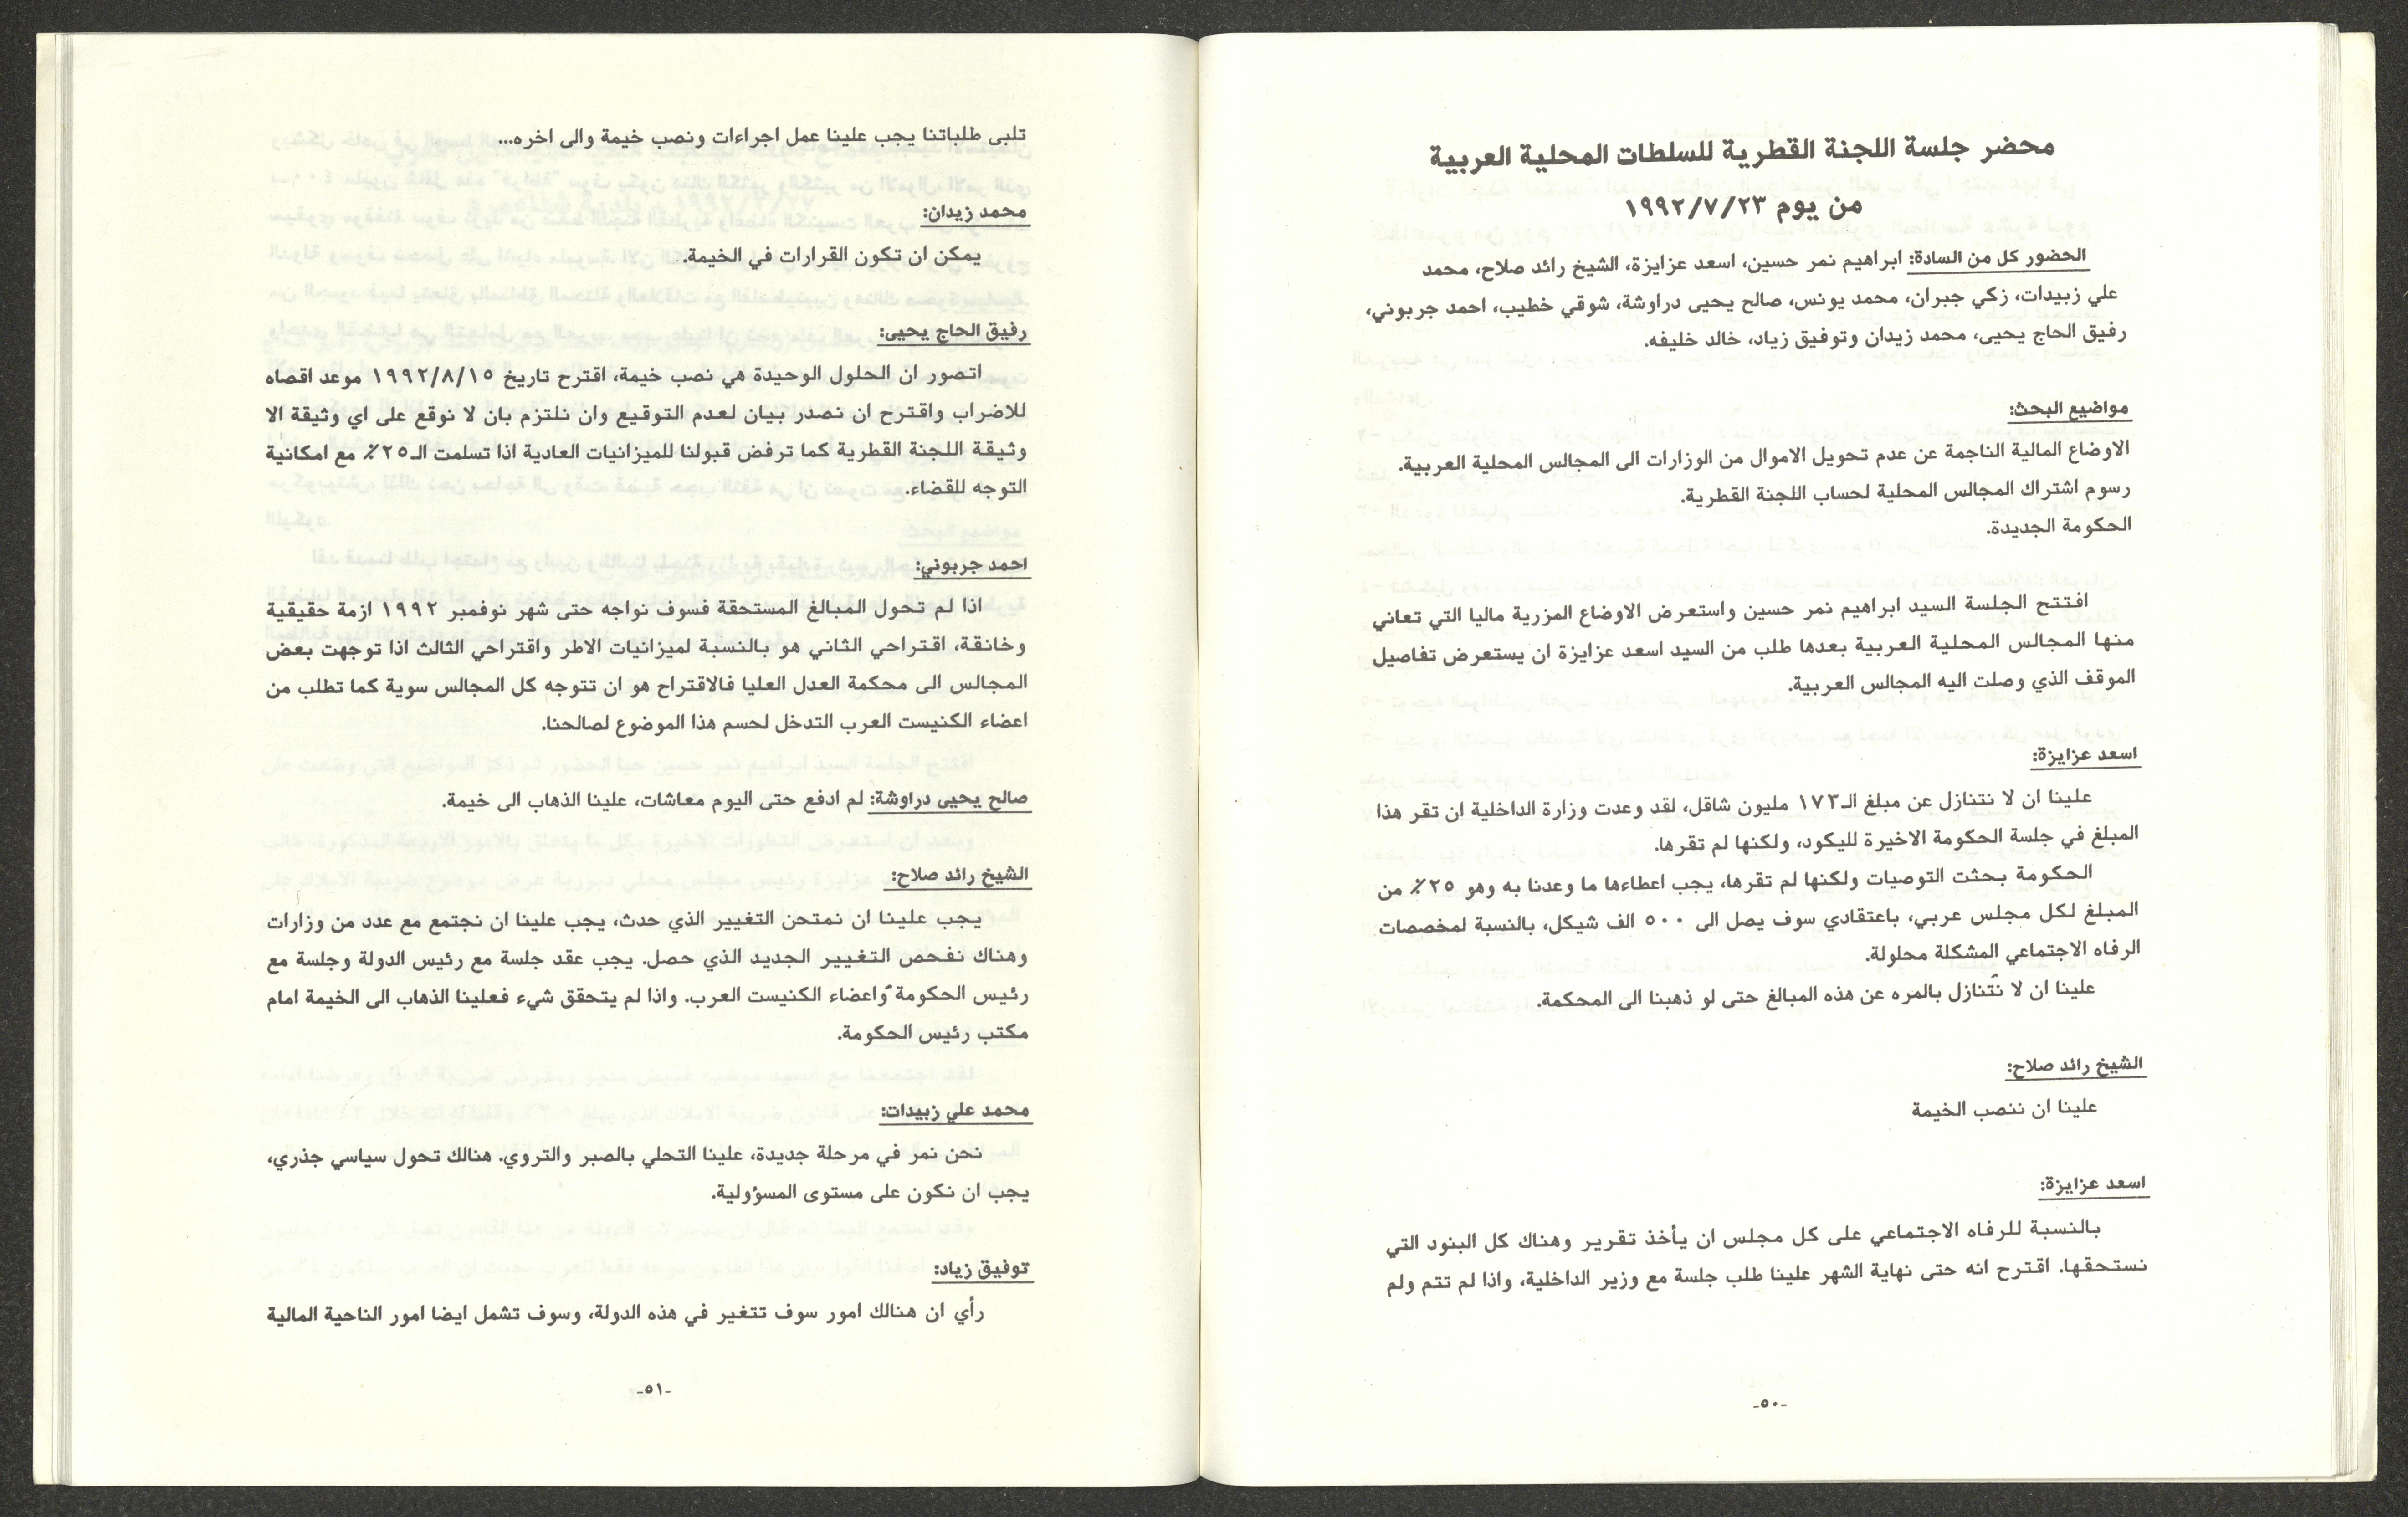 محضر جلسة اللجنة القطرية للسلطات المحلية العربية
من يوم ١٩٩٢/٧/٢٣
الحضور كل من السادة: ابراهيم نمر حسين، اسعد عزايزة، الشيخ رائد صلاح، محمد
علي زبيدات، زكي جبران، محمد يونس، صالح يحيى دراوشة، شوقي خطيب، احمد جربوني،
رفيق الحاج يحيى، محمد زيدان وتوفيق زياد، خالد خليفه.
مواضيع البحث:
الاوضاع المالية الناجمة عن عدم تحويل الاموال من الوزارات الى المجالس المحلية العربية.
رسوم اشتراك المجالس المحلية لحساب اللجنة القطرية.
الحكومة الجديدة.
افتتح الجلسة السيد ابراهيم نمر حسين واستعرض الاوضاع المزرية ماليا التي تعاني
منها المجالس المحلية العربية بعدها طلب من السيد اسعد عزايزة ان يستعرض تفاصيل
الموقف الذي وصلت اليه المجالس العربية.
اسعد عزايزة:
علينا ان لا نتنازل عن مبلغ الـ١٧٣ مليون شاقل، لقد وعدت وزارة الداخلية ان تقر هذا
المبلغ في جلسة الحكومة الاخيرة لليكود، ولكنها لم تقرها.
الحكومة بحثت التوصيات ولكنها لم تقرها، يجب اعطاءها ما وعدنا به وهو ٢٥٪ من
المبلغ لكل مجلس عربي، باعتقادي سوف يصل الى ٥٠٠ الف شيكل، بالنسبة لمخصصات
الرفاه الاجتماعي المشكلة محلولة.
علينا ان لا نتنازل بالمره عن هذه المبالغ حتى لو ذهبنا الى المحكمة.
الشيخ رائد صلاح:
علينا ان ننصب الخيمة
اسعد عزايزة:
بالنسبة للرفاه الاجتماعي على كل مجلس ان يأخذ تقرير وهناك كل البنود التي
نستحقها. اقترح انه حتى نهاية الشهر علينا طلب جلسة مع وزير الداخلية، واذا لم تتم ولم
-٥٠-
تلبى طلباتنا يجب علينا عمل اجراءات ونصب خيمة والى اخره...
محمد زيدان:
يمكن ان تكون القرارات في الخيمة.
رفيق الحاج يحيى:
اتصور ان الحلول الوحيدة هي نصب خيمة، اقترح تاريخ ١٩٩٢/٨/١٥ موعد اقصاه
للاضراب واقترح ان نصدر بيان لعدم التوقيع وان نلتزم بان لا نوقع على اي وثيقة الا
وثيقة اللجنة القطرية كما ترفض قبولنا للميزانيات العادية اذا تسلمت الـ٢٥٪ مع امكانية
التوجه للقضاء.
احمد جربوني:
اذا لم تحول المبالغ المستحقة فسوف نواجه حتى شهر نوفمبر ١٩٩٢ ازمة حقيقية
وخانقة، اقتراحي الثاني هو بالنسبة لميزانيات الاطر واقتراحي الثالث اذا توجهت بعض
المجالس الى محكمة العدل العليا فالاقتراح هو ان تتوجه كل المجالس سوية كما تطلب من
اعضاء الكنيست العرب التدخل لحسم هذا الموضوع لصالحنا.
صالح يحيى دراوشة: لم ادفع حتى اليوم معاشات، علينا الذهاب الى خيمة.
الشيخ رائد صلاح:
يجب علينا ان نمتحن التغيير الذي حدث، يجب علينا ان نجتمع مع عدد من وزارات
وهناك نفحص التغيير الجديد الذي حصل. يجب عقد جلسة مع رئيس الدولة وجلسة مع
رئيس الحكومة واعضاء الكنيست العرب. واذا لم يتحقق شيء فعلينا الذهاب الى الخيمة امام
مكتب رئيس الحكومة.
محمد علي زبيدات:
نحن نمر في مرحلة جديدة، علينا التحلي بالصبر والتروي. هنالك تحول سياسي جذري،
يجب ان نكون على مستوى المسؤولية.
توفيق زياد:
رأي ان هنالك امور سوف تتغير في هذه الدولة، وسوف تشمل ايضا امور الناحية المالية
-٥١-